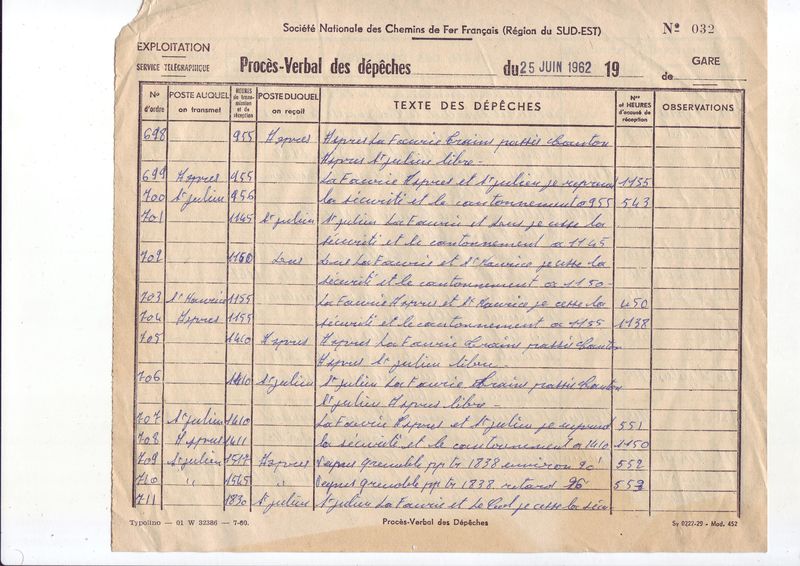 Société Nationale des Chemins de Fer Français (Région du SUD-EST)
Nº 032
EXPLOITATION
SERVICE TÉLÉGRAPHIQUE
Procès-Verbal des dépêches du 25 JUIN 1962 19
GARE
de
Nº d'ordre
POSTE AUQUEL on transmet
HEURES de transmission et de réception
POSTE DUQUEL on reçoit
TEXTE DES DÉPÊCHES
Nos et HEURES d'accusé de réception
OBSERVATIONS
698 955 Aspres Aspres La Faurie trains passés Canton
Aspres St julien libre -
699 Aspres 955 La Faurie Aspres et St julien je reprend 1155
700 St julien 956 la sécurité et le cantonnement a 955 543
701 1145 St julien St julien La Faurie et Lus je cesse la
sécurité et le cantonnement a 1145
702 1150 Lus Lus La Faurie et St Maurice je cesse la
sécurité et le cantonnement a 1150 -
703 St Maurice 1155 La Faurie Aspres et St Maurice je cesse la 450
704 Aspres 1155 sécurité et le cantonnement a 1155 1138
705 1410 Aspres Aspres La Faurie trains passés Canton
Aspres St julien libre -
706 1410 St julien St julien La Faurie trains passés Canton
St julien Aspres libre -
707 St julien 1410 La Faurie Aspres et St julien je reprend 551
708 Aspres 1411 la sécurité et le cantonnement a 1410 1150
709 St julien 1517 Aspres Veynes Grenoble tr 1838 environ 20' 552
710 " 1545 " Veynes Grenoble tr 1838 retard 26' 553
711 1830 St julien St julien La Faurie et je cesse la sécu-
Typolino — 01 W 32386 — 7-60.
Procès-Verbal des Dépêches
Sy 0227-29 - Mod. 452